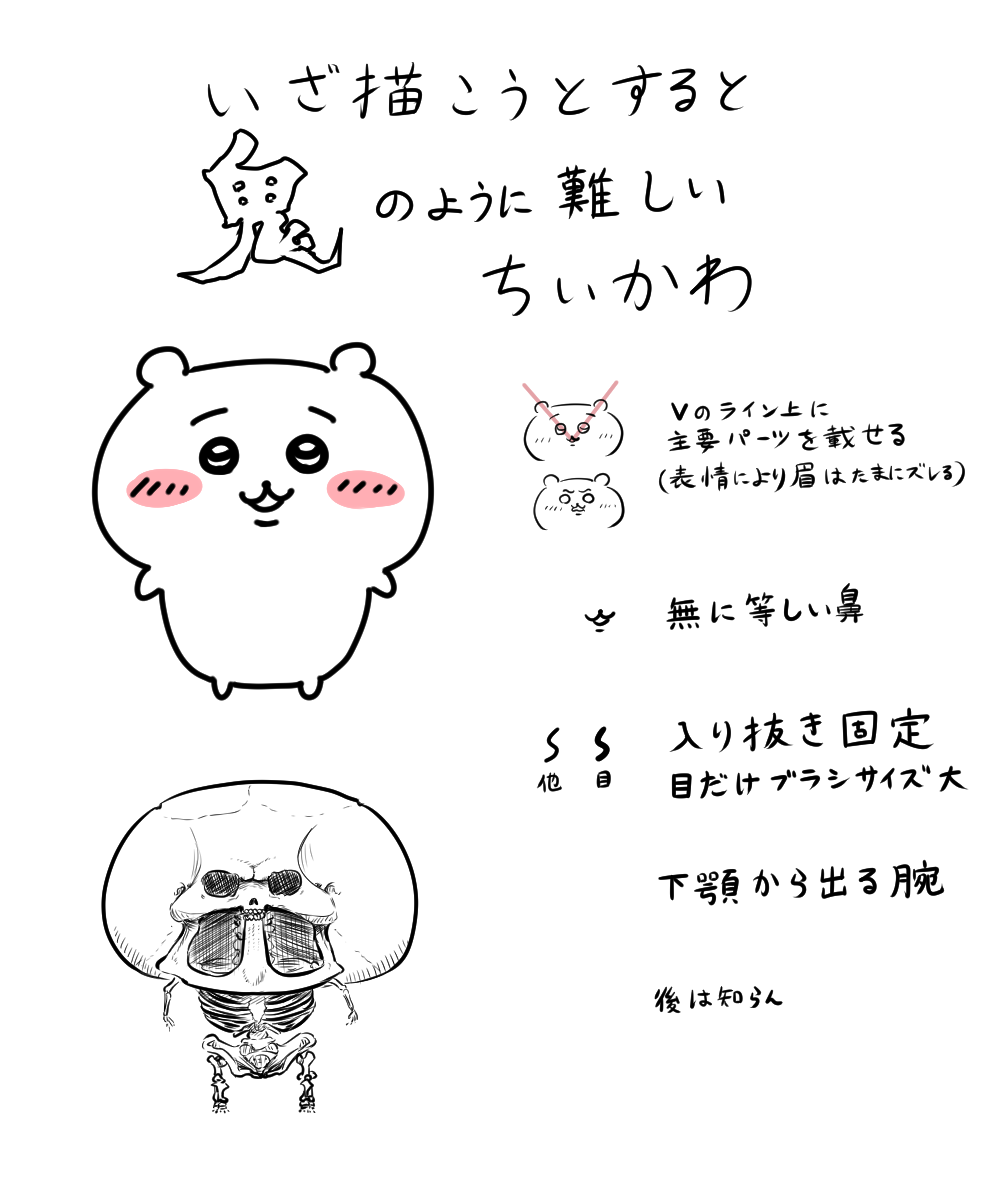 いざ描こうとすると
鬼のように難しい
ちいかわ
Vのライン上に
主要パーツを載せる
(表情により眉はたまにズレる)
無に等しい鼻
入り抜き固定
他 目
目だけブラシサイズ大
下顎から出る腕
後は知らん